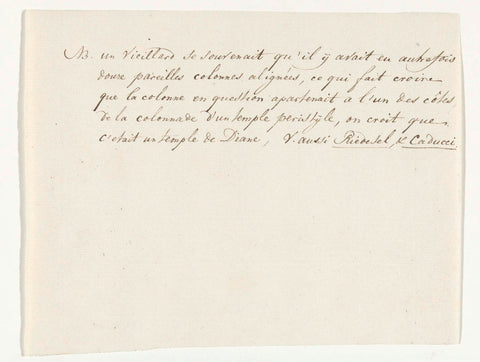 NB. un vieillard se souvenait qu'il ÿ avait eu autrefois
douze pareilles colonnes alignées, ce qui fait croire
que la colonne en question apartenait a l'un des côtés
de la colonnade d'un temple peristÿle, on croit que
c'etait un temple de Diane, V. aussi Riedesel, & Caducci